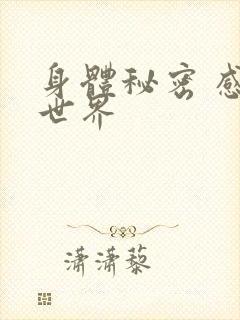 身體秘密 感
世界
瀟瀟藜